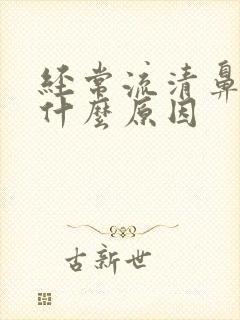 经常流清鼻
什麼原因
古新世